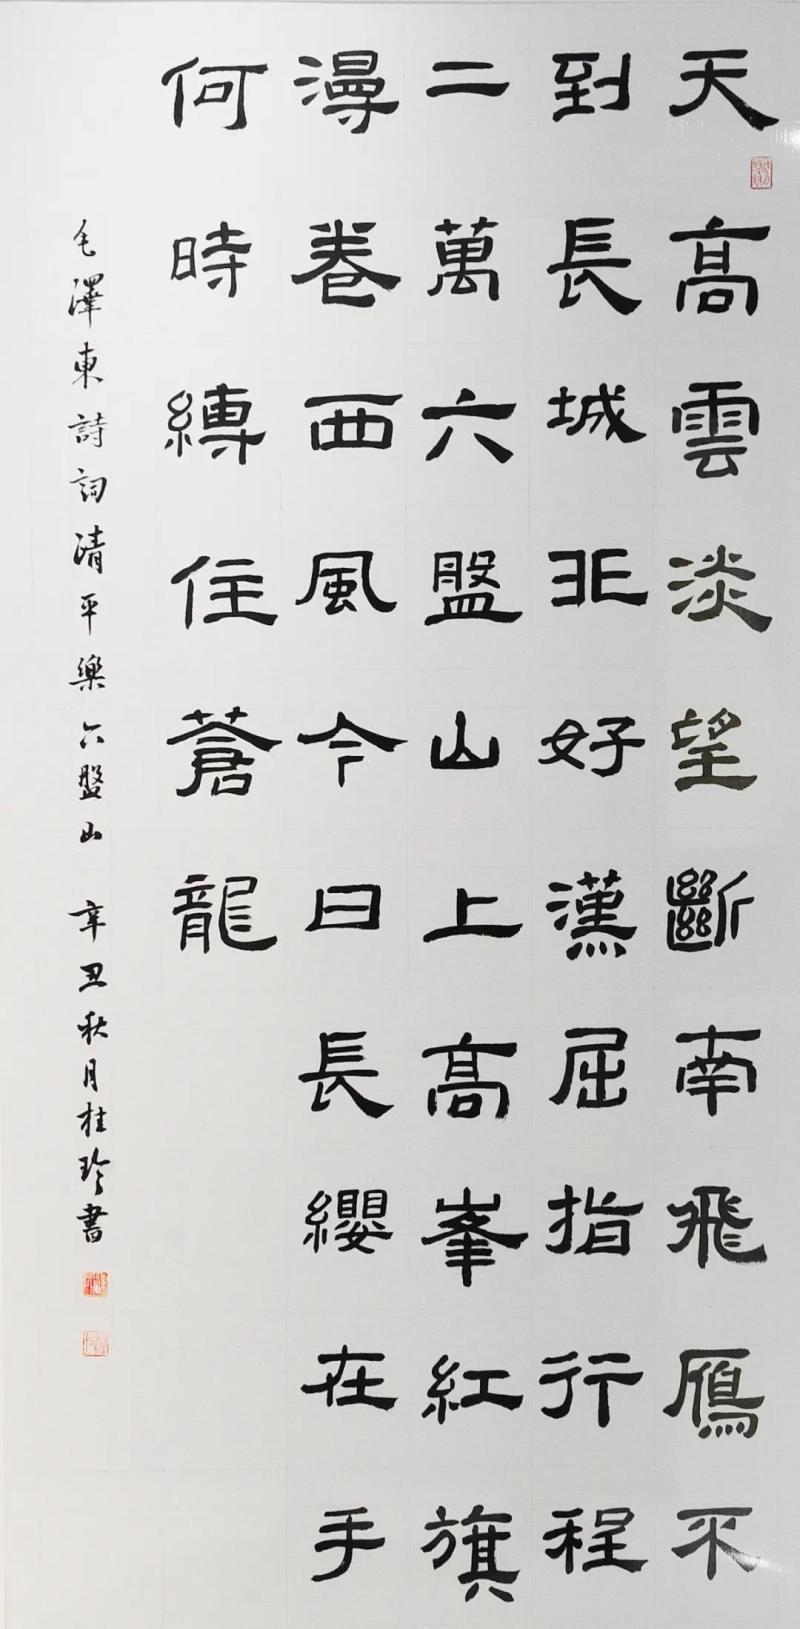 天高雲淡望斷南飛雁不
到長城非好漢屈指行程
二萬六盤山上高峯紅旗
漫卷西風今日長纓在手
何時縛住蒼龍
毛澤東詩詞清平樂六盤山 辛丑秋月桂珍書